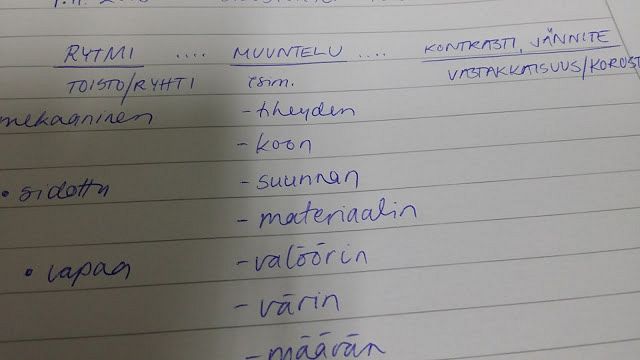 RYTMI .... MUUNTELU .... KONTRASTI, JÄNNITE
TOISTO/RYHTI esim. VASTAKKAISUUS/KOROST
mekaaninen - tiheyden
- koon
• sidottu - suunnan
- materiaalin
• vapaa - valöörin
- värin
- määrän